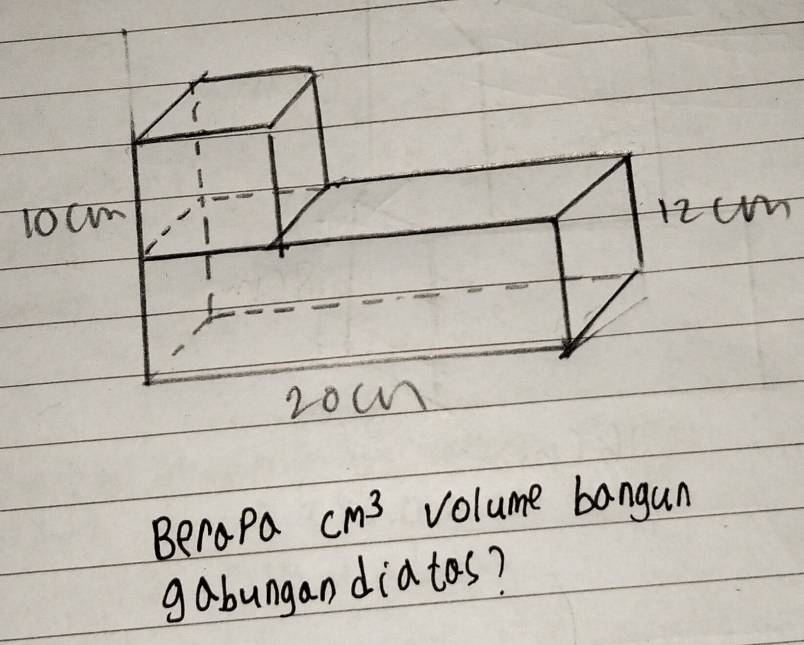 10 cm
12 cm
20 cm
Berapa cm³ volume bangun
gabungan diatas?